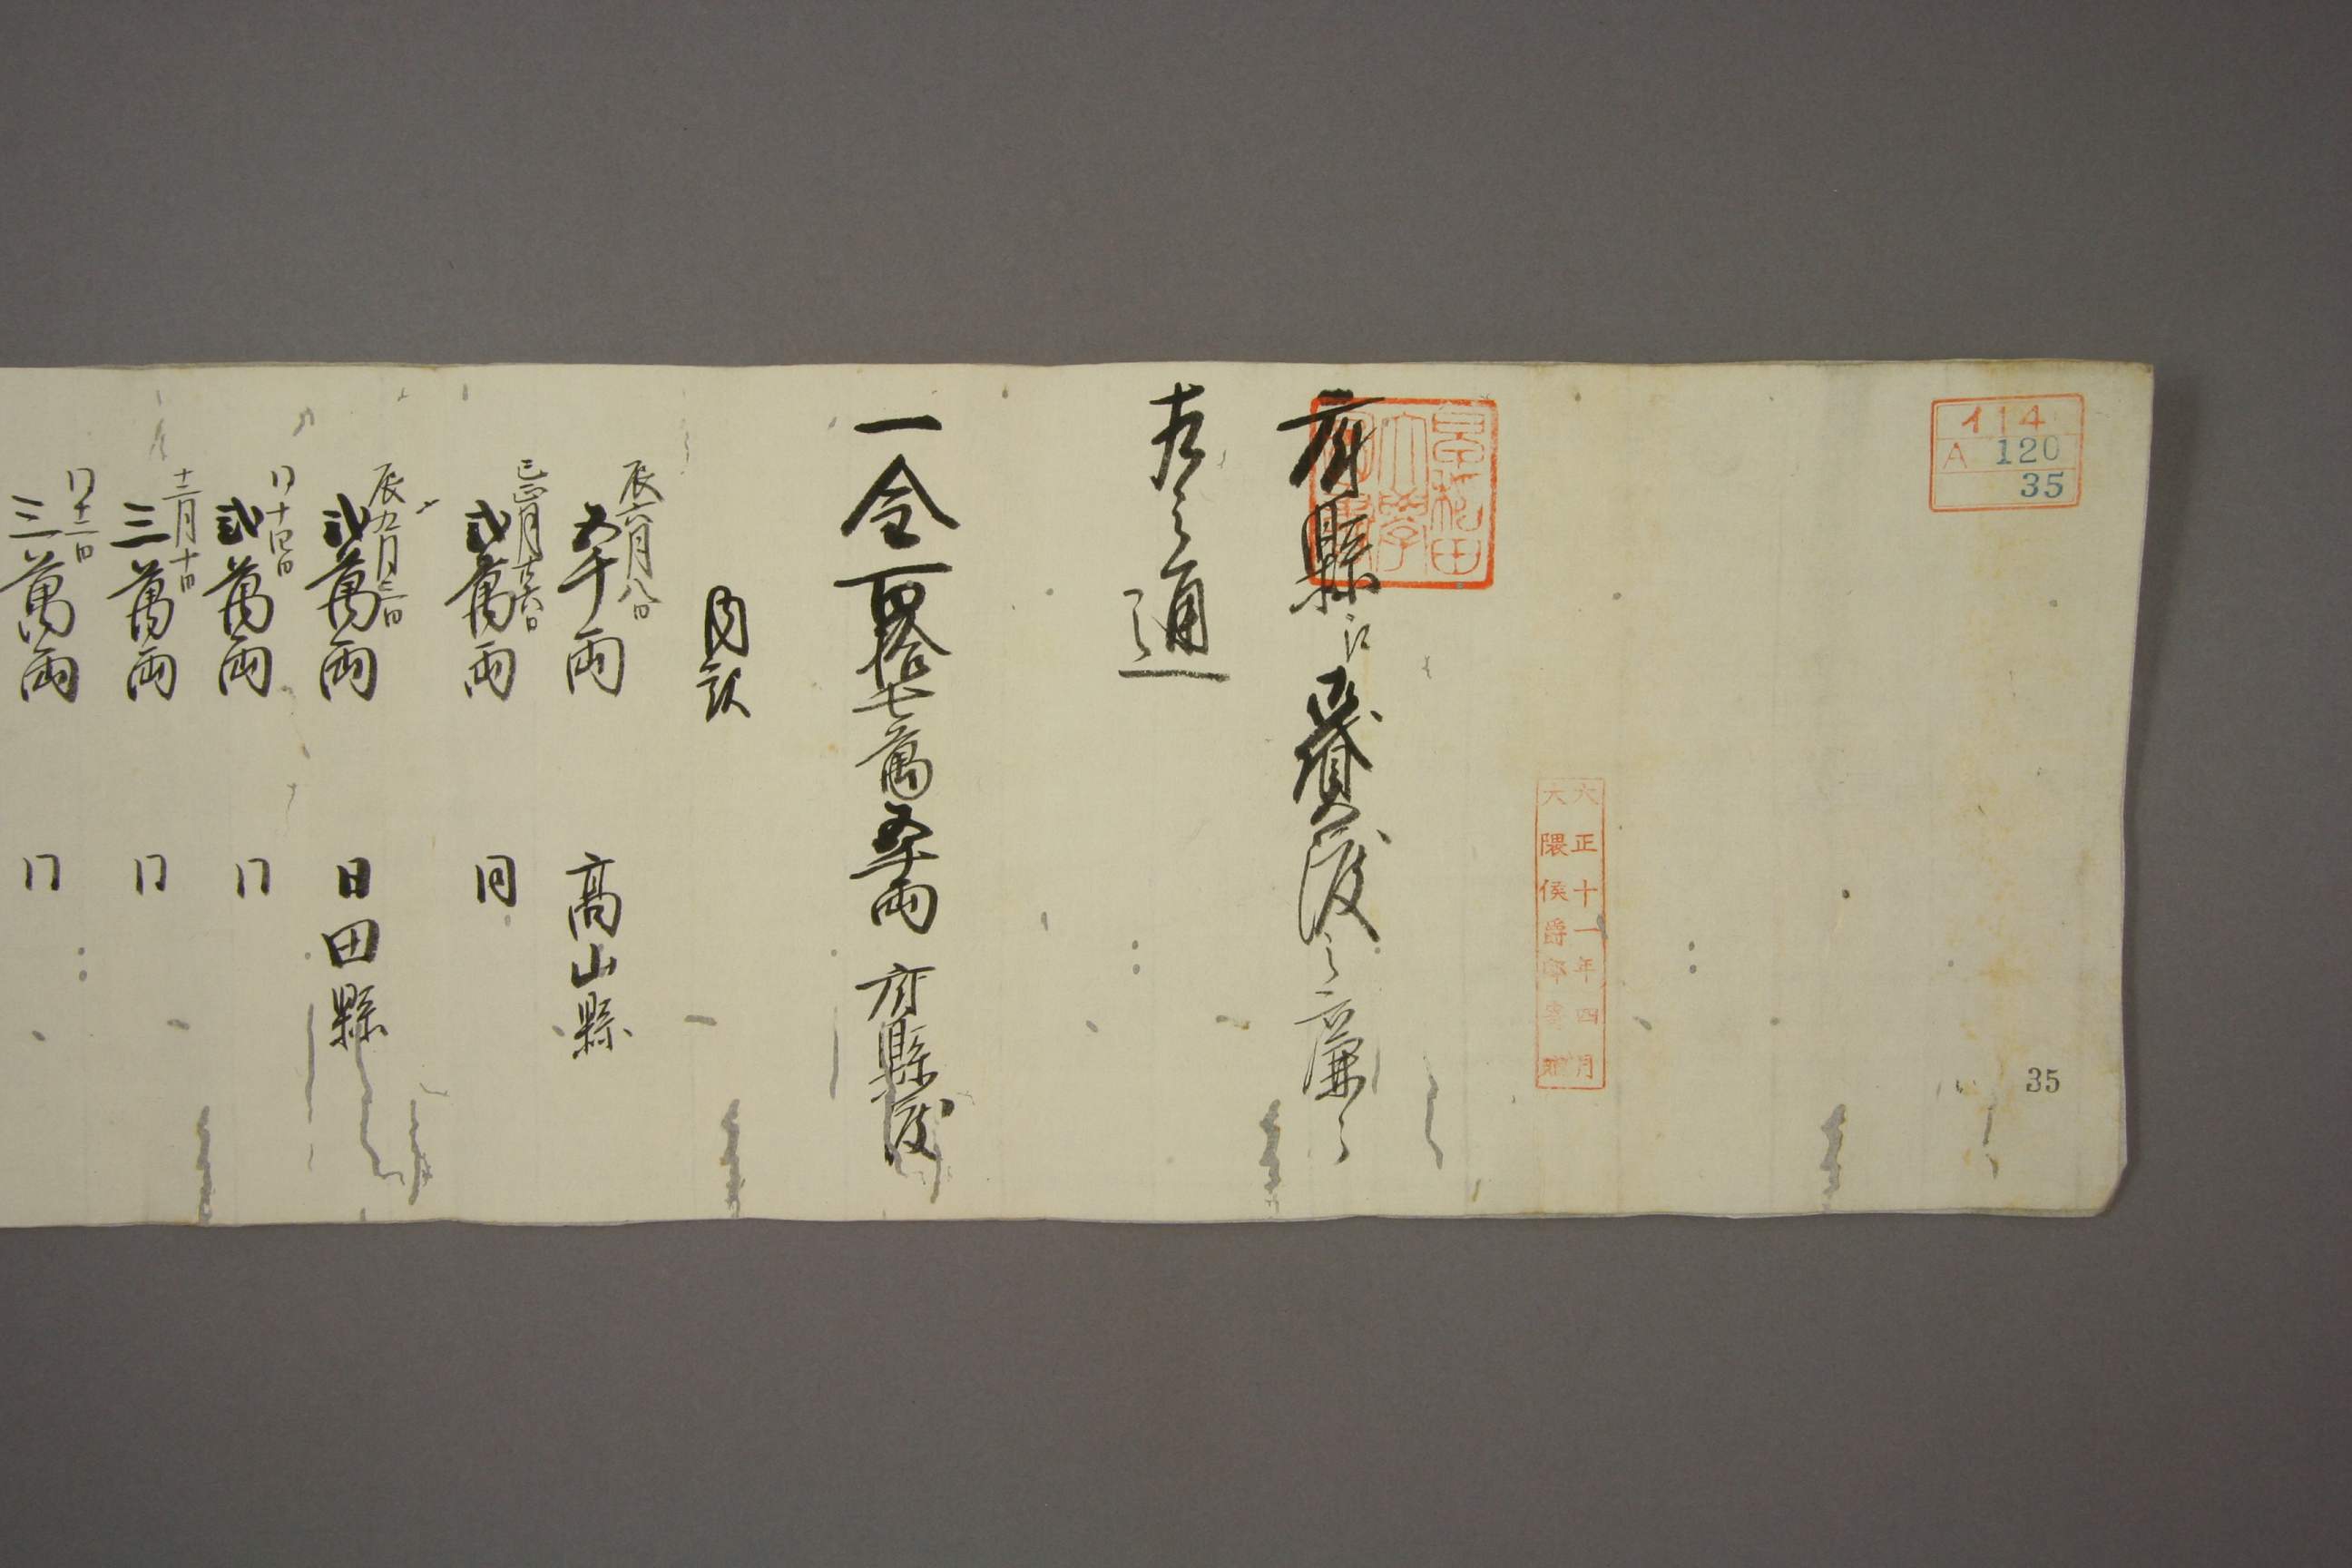 イ14
A 120
35
35
大正十一年四月
大隈侯爵邸寄贈
早稲田大学図書
府縣江御貸渡之廉々
左之通
一金百四拾七萬五千両 府縣渡
内訳
辰六月八日
五千両 高山縣
巳正月廿六日
弐萬両 同
辰九月三日
弐萬両 日田縣
同十四日
弐萬両 同
十二月十日
三萬両 同
同十二日
三萬両 同